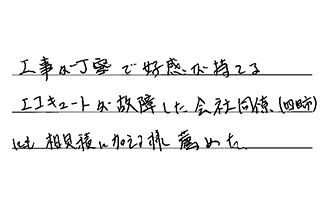 工事が丁寧で好感が持てる
エコキュートが故障した会社同僚(四日市)
にも相見積に加える様薦めた。